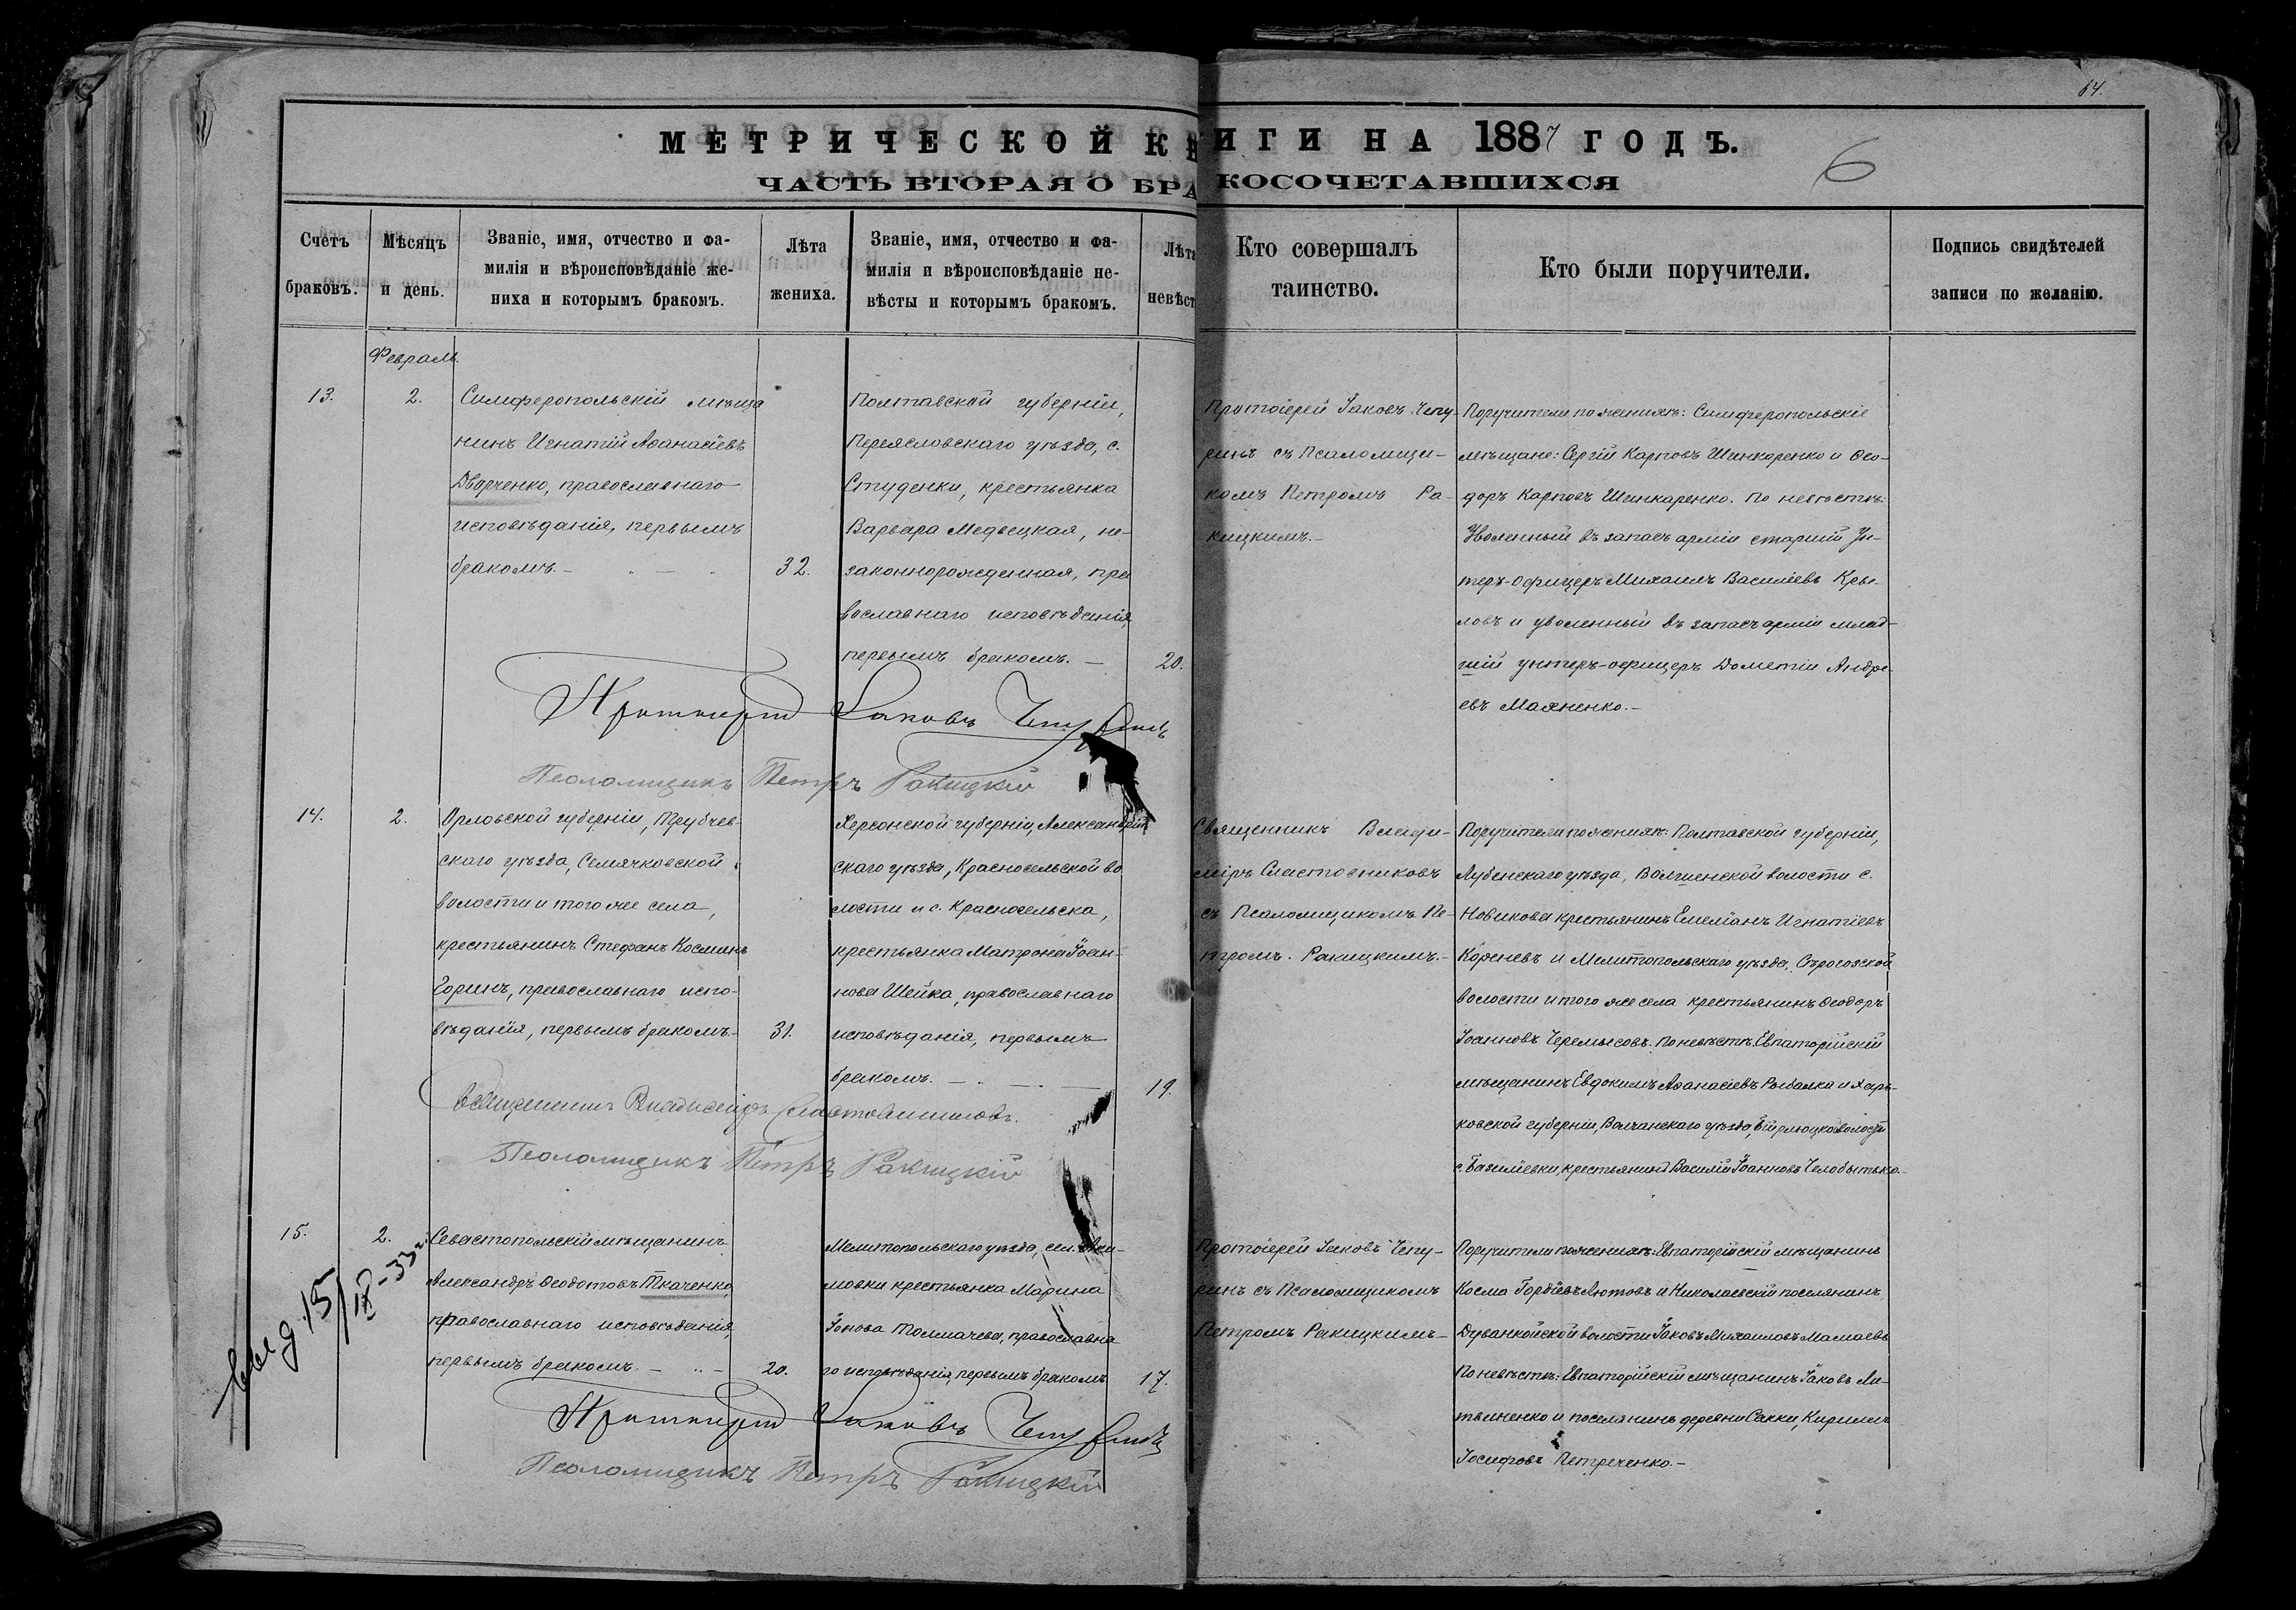 64.
МЕТРИЧЕСКОЙ КНИГИ НА 1887 ГОДЪ.
6
ЧАСТЬ ВТОРАЯ О БРАКОСОЧЕТАВШИХСЯ
Счетъ
браковъ.
Мѣсяцъ
и день.
Званіе, имя, отчество и фа-
милія и вѣроисповѣданіе же-
ниха и которымъ бракомъ.
Лѣта
жениха.
Званіе, имя, отчество и фа-
милія и вѣроисповѣданіе не-
вѣсты и которымъ бракомъ.
Лѣта
невѣст
Кто совершалъ
таинство.
Кто были поручители.
Подпись свидѣтелей
записи по желанію.
Февраль.
13.
2.
Симферопольскій мѣща
нинъ Игнатій Аѳанасіевъ
Дворченко, православнаго
исповѣданія, первымъ
бракомъ.-
32.
Полтавской губерніи,
Переясловскаго уѣзда, с.
Студенки, крестьянка
Варвара Медвецкая, не-
законнорожденная, пра
вославнаго исповѣданія,
первымъ бракомъ. —
20.
Протоіерей Іаковъ Чепу-
ринъ съ Псаломщи-
комъ Петромъ Ра-
кицкимъ.-
Поручители по женихѣ: Симферопольскіе
мѣщане: Сергій Карповъ Шинкоренко и Ѳео-
доръ Карповъ Шинкаренко. По невѣстѣ:
Уволенный въ запасъ арміи старшій Ун-
теръ-офицеръ Михаилъ Василіевъ Кры-
ловъ и уволенный въ запасъ арміи млад-
шій унтеръ-офицеръ Дометій Андре-
евъ Маяненко.-
Протоіерей Іаковъ Чепуринъ
Псаломщикъ Петръ Ракицкій
14.
2.
Орловской губерніи, Трубчев-
скаго уѣзда, Семячковской
волости и того же села,
крестьянинъ Стефанъ Косминъ
Горинъ, православнаго испо-
вѣданія, первымъ бракомъ-
31.
Херсонской губерніи, Александрій
скаго уѣзда, Красносельской во
лости и с. Красносельска,
крестьянка Матрона Іоан-
нова Шейка, православнаго
исповѣданія, первымъ
бракомъ. —
19.
Священникъ Влади-
міръ Сластовниковъ
съ Псаломщикомъ Пе-
тромъ Ракицкимъ.-
Поручители по женихѣ: Полтавской губерніи,
Лубенскаго уѣзда, волости с.
Новикова крестьянинъ Емеліанъ Игнатіевъ
Кореневъ и Мелитопольскаго уѣзда, Сѣрогозской
волости и того же села крестьянинъ Ѳеодоръ
Іоанновъ Черемысовъ. По невѣстѣ: Евпаторійскій
мѣщанинъ Евдокимъ Аѳанасіевъ Рыбалка и Харь-
ковской губерніи, Волчанскаго уѣзда, волости
с. Василіевки, крестьянинъ Василій Іоанновъ Челобитько-
Священникъ Владиміръ Сластовниковъ.
Псаломщикъ Петръ Ракицкій
15.
2.
Севастопольскій мѣщанинъ
Александръ Ѳеодотовъ Ткаченко,
православнаго исповѣданія,
первымъ бракомъ. —
20.
Мелитопольскаго уѣзда, сел.
мовки крестьянка Марина
Іонова Толмачева, православна
го исповѣданія, первымъ бракомъ
17.
Протоіерей Іаковъ Чепу-
ринъ съ Псаломщикомъ
Петромъ Ракицкимъ-
Поручители по женихѣ: Евпаторійскій мѣщанинъ
Косма Лютовъ и Николаевскій поселянинъ
Дуванкойской волости Іаковъ Михаиловъ Мамаевъ
По невѣстѣ: Евпаторійскій мѣщанинъ Іаковъ Ли-
твиненко и поселянинъ деревни Сакки, Кириллъ
Іосифовъ Петреченко.-
Протоіерей Іаковъ Чепуринъ
Псаломщикъ Петръ Ракицкій